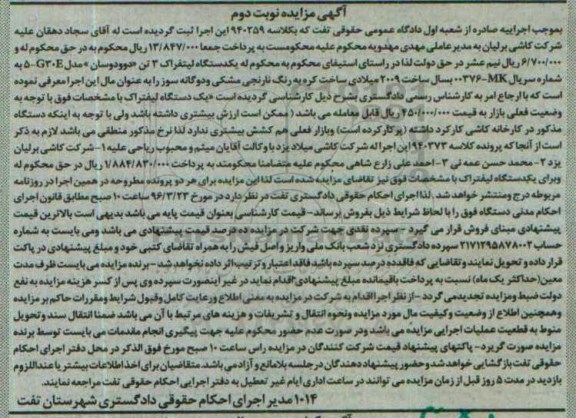 آگهی مزایده نوبت دوم
بموجب اجراییه صادره از شعبه اول دادگاه عمومی حقوقی تفت که بکلاسه ۹۴۰۲۵۹ این اجرا ثبت گردیده است له آقای سجاد دهقان علیه
شرکت کاشی برلیان به مدیر عاملی مهدی مهدویه محکوم علیه محکومست به پرداخت جمعا ۱۳/۸۴۷/۰۰۰ ریال محکوم به در حق محکوم له و
۶/۷۰۰/۰۰۰ ریال نیم عشر در حق دولت لذا در راستای استیفای محکوم به محکوم له یکدستگاه لیفتراک ۳ تن «دوودوسان» مدل G30E-5 به
شماره سریال MK-۰۰۳۷۶ بسال ساخت ۲۰۰۹ میلادی ساخت کره به رنگ نارنجی مشکی ودوگانه سوز را به عنوان مال این اجرا معرفی نموده
است که با ارجاع امر به کارشناس رسمی دادگستری بشرح ذیل کارشناسی گردیده است «یک دستگاه لیفتراک با مشخصات فوق با توجه به
وضعیت فعلی بازار به قیمت ۴۵۰/۰۰۰/۰۰۰ ریال قابل معامله می باشد ( ممکن است ارزش بیشتری داشته باشد ولی با توجه به اینکه دستگاه
مذکور در کارخانه کاشی کارکرد داشته (پر کار کرده است) وبازار فعلی هم کشش بیشتری ندارد لذا نرخ مذکور منطقی می باشد لازم به ذکر
است از آنجا که پرونده کلاسه ۹۴۰۳۷۳ این اجرا له شرکت کاشی میلاد یزد با وکالت آقایان میثم و محبوب ریاحی علیه ۱- شرکت کاشی برلیان
یزد ۲- محمد حسن عمه نی ۳- احمد علی زارع شاهی محکوم علیه متضامنا محکومند به پرداخت ۱/۸۸۴/۸۳۰/۰۰۰ ریال در حق محکوم له
وبرای یکدستگاه لیفتراک با مشخصات فوق نیز تقاضای مزایده شده است لذا این مزایده برای هر دو پرونده مطروحه در همین اجرا در روزنامه
مربوطه درج ومنتشر خواهد شد . لذا اجرای احکام حقوقی دادگستری تفت در نظر دارد در مورخ ۹۶/۳/۲۳ ساعت ۱۰ صبح مطابق قانون اجرای
احکام مدنی دستگاه فوق را با لحاظ شرایط ذیل بفروش برساند- قیمت کارشناسی بعنوان قیمت پایه می باشد بدیهی است بالاترین قیمت
پیشنهادی مبنای فروش قرار می گیرد - سپرده نقدی جهت شرکت در مزایده ده درصد قیمت پیشنهادی می باشد ومی بایست به شماره
حساب ۲۱۷۱۲۹۵۸۷۸۰۰۲ سپرده دادگستری نزد شعب بانک ملی واریز واصل فیش را به همراه تقاضای کتبی خود و مبلغ پیشنهادی در پاکت
قرار داده و تحویل نمایند وتقاضایی که فاقد ده درصد سپرده باشد فاقد اعتبار و ترتیب اثر داده نخواهد شد - برنده مزایده می بایست ظرف مدت
معین(حداکثر یک ماه) نسبت به پرداخت باقیمانده مبلغ پیشنهادی اقدام نماید در غیر اینصورت سپرده وی پس از کسر هزینه مزایده به نفع
دولت ضبط ومزایده تجدید می گردد -از نظر اجرا اقدام به شرکت در مزایده به معنی اطلاع و رعایت کامل وقبول شرایط ومقررات حاکم بر مزایده
وهمچنین اطلاع از وضعیت وکیفیت مال مورد مزایده ونحوه انتقال و تشریفات و هزینه های مرتبط با آن می باشد ضمنا انتقال سند وتحویل
منوط به قطعیت عملیات اجرایی مزایده می باشد ودر صورت عدم حضور محکوم علیه جهت پیگیری انجام مقدمات می بایست توسط برنده
مزایده صورت گیرد- پاکتهای پیشنهاد قیمت شرکت کنندگان در مزایده راس ساعت ۱۰ صبح مورخ فوق الذکر در محل دفتر اجرای احکام
حقوقی تفت بازگشایی خواهد شد و حضور پیشنهاد دهندگان در جلسه بلامانع و آزاد می باشد. متقاضیان برای اخذ اطلاعات بیشتر یا عنداللزوم
بازدید در مدت ۵ روز قبل از زمان مزایده می توانند در ساعت اداری ایام غیر تعطیل به دفتر اجرایی احکام حقوقی تفت مراجعه نمایند.
۱۰۱۴ مدیر اجرای احکام حقوقی دادگستری شهرستان تفت